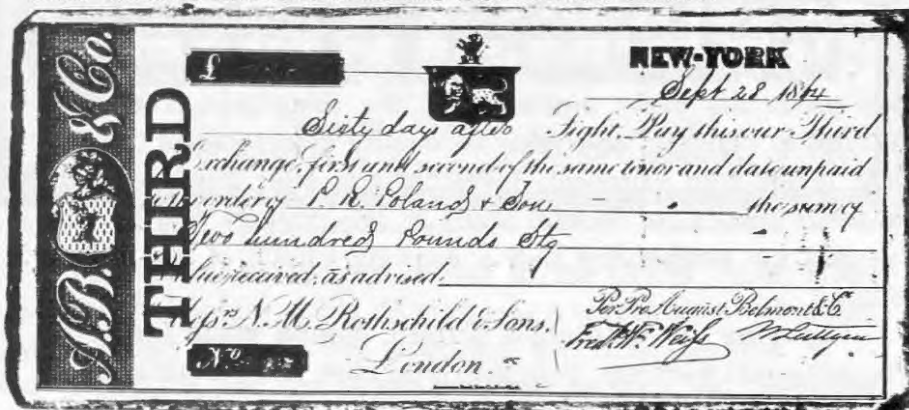 A.B. & Co.
THIRD
£
NEW-YORK
Sept 28 1864
Sixty days after Sight, Pay this our Third
Exchange, first and second of the same tenor and date unpaid
order of P. R. Poland & Son the sum of
Two hundred Pounds Stg
Value received, as advised
Messrs N. M. Rothschild & Sons.
London.
No.
Per Pro August Belmont & Co
Fredk. Wm. Weifs